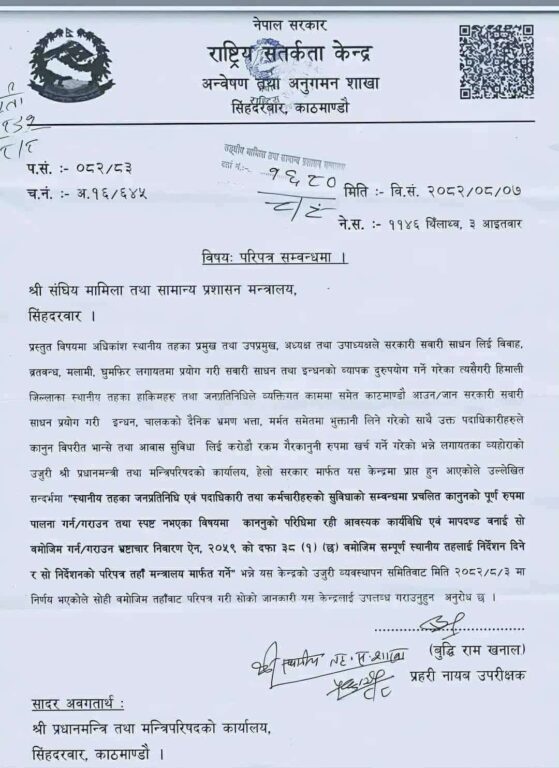 नेपाल सरकार
राष्ट्रिय सतर्कता केन्द्र
अन्वेषण तथा अनुगमन शाखा
सिंहदरवार, काठमाण्डौ
सङ्घीय मामिला तथा सामान्य प्रशासन मन्त्रालय
दर्ता नं.:- १६८०
८/८
प.सं. :- ०८२/८३
च.नं. :- अ.१६/६४५
मिति :- वि.सं. २०८२/०८/०७
ने.स. :- ११४६ थिंलाथ्व, ३ आइतवार
विषयः परिपत्र सम्बन्धमा ।
श्री संघिय मामिला तथा सामान्य प्रशासन मन्त्रालय,
सिंहदरवार ।
प्रस्तुत विषयमा अधिकांश स्थानीय तहका प्रमुख तथा उपप्रमुख, अध्यक्ष तथा उपाध्यक्षले सरकारी सवारी साधन लिई विवाह,
व्रतवन्ध, मलामी, घुमफिर लगायतमा प्रयोग गरी सवारी साधन तथा इन्धनको व्यापक दुरुपयोग गर्ने गरेका त्यसैगरी हिमाली
जिल्लाका स्थानीय तहका हाकिमहरु तथा जनप्रतिनिधिले व्यक्तिगत काममा समेत काठमाण्डौ आउन/जान सरकारी सवारी
साधन प्रयोग गरी इन्धन, चालकको दैनिक भ्रमण भत्ता, मर्मत समेतमा भुक्तानी लिने गरेको साथै उक्त पदाधिकारीहरुले
कानुन विपरीत भान्से तथा आवास सुविधा लिई करोडौ रकम गैरकानुनी रुपमा खर्च गर्ने गरेको भन्ने लगायतका व्यहोराको
उजुरी श्री प्रधानमन्त्री तथा मन्त्रिपरिषदको कार्यालय, हेलो सरकार मार्फत यस केन्द्रमा प्राप्त हुन आएकोले उल्लेखित
सन्दर्भमा "स्थानीय तहका जनप्रतिनिधि एवं पदाधिकारी तथा कर्मचारीहरुको सुविधाको सम्बन्धमा प्रचलित कानुनको पूर्ण रुपमा
पालना गर्न/गराउन तथा स्पष्ट नभएका विषयमा काननुको परिधिमा रही आवस्यक कार्यविधि एवं मापदण्ड वनाई सो
वमोजिम गर्न/गराउन भ्रष्टाचार निवारण ऐन, २०५९ को दफा ३८ (१) (छ) वमोजिम सम्पूर्ण स्थानीय तहलाई निर्देशन दिने
र सो निर्देशनको परिपत्र तहाँ मन्त्रालय मार्फत गर्ने" भन्ने यस केन्द्रको उजुरी व्यवस्थापन समितिवाट मिति २०८२/८/३ मा
निर्णय भएकोले सोही वमोजिम तहाँवाट परिपत्र गरी सोको जानकारी यस केन्द्रलाई उपलब्ध गराउनुहुन अनुरोध छ ।
(वुद्धि राम खनाल)
प्रहरी नायव उपरीक्षक
सादर अवगतार्थ :
श्री प्रधानमन्त्रि तथा मन्त्रिपरिषदको कार्यालय,
सिंहदरवार, काठमाण्डौ ।